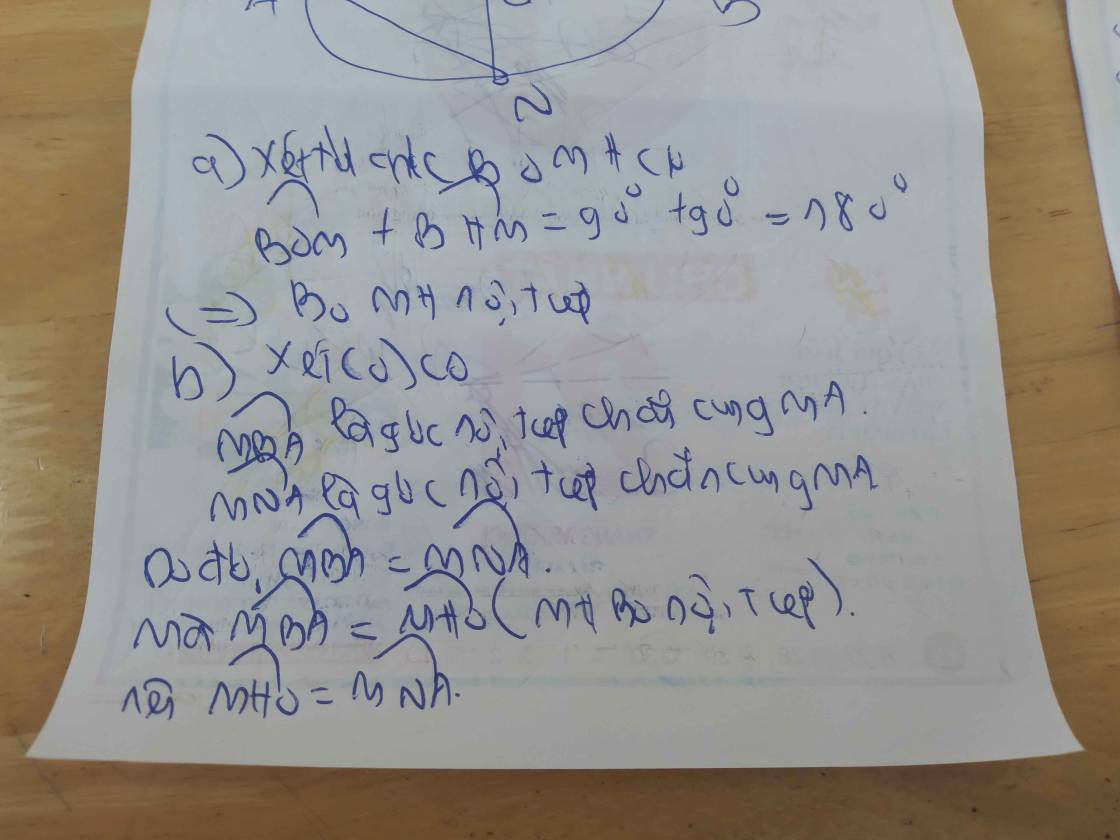 A B
N
a) Xét tứ giác BOMH có
BOM + BHM = 90° + 90° = 180°
(=) BOMH nội tiếp
b) Xét (O) có
MBA là góc nội tiếp chắn cung MA.
MNA là góc nội tiếp chắn cung MA
Do đó, MBA = MNA.
Mà MBA = MHO (MHBO nội tiếp).
nên MHO = MNA.